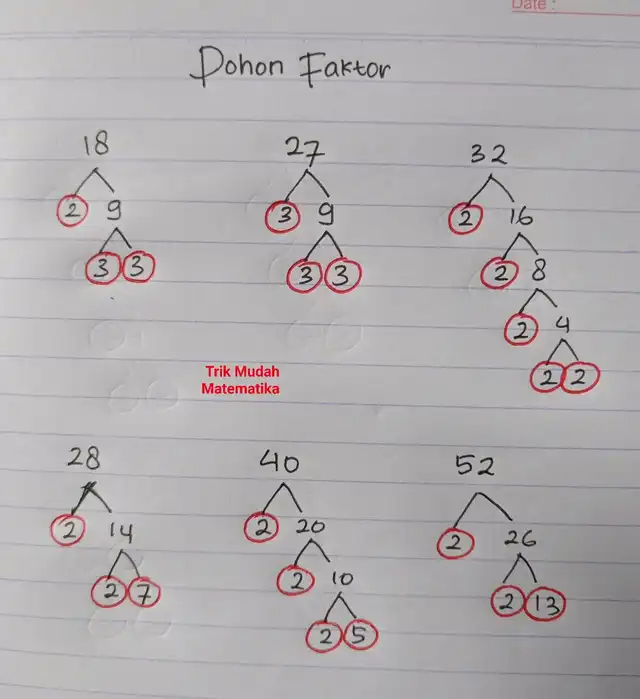 Date :
Pohon Faktor
18
2 9
3 3
27
3 9
3 3
32
2 16
2 8
2 4
2 2
Trik Mudah
Matematika
28
2 14
2 7
40
2 20
2 10
2 5
52
2 26
2 13